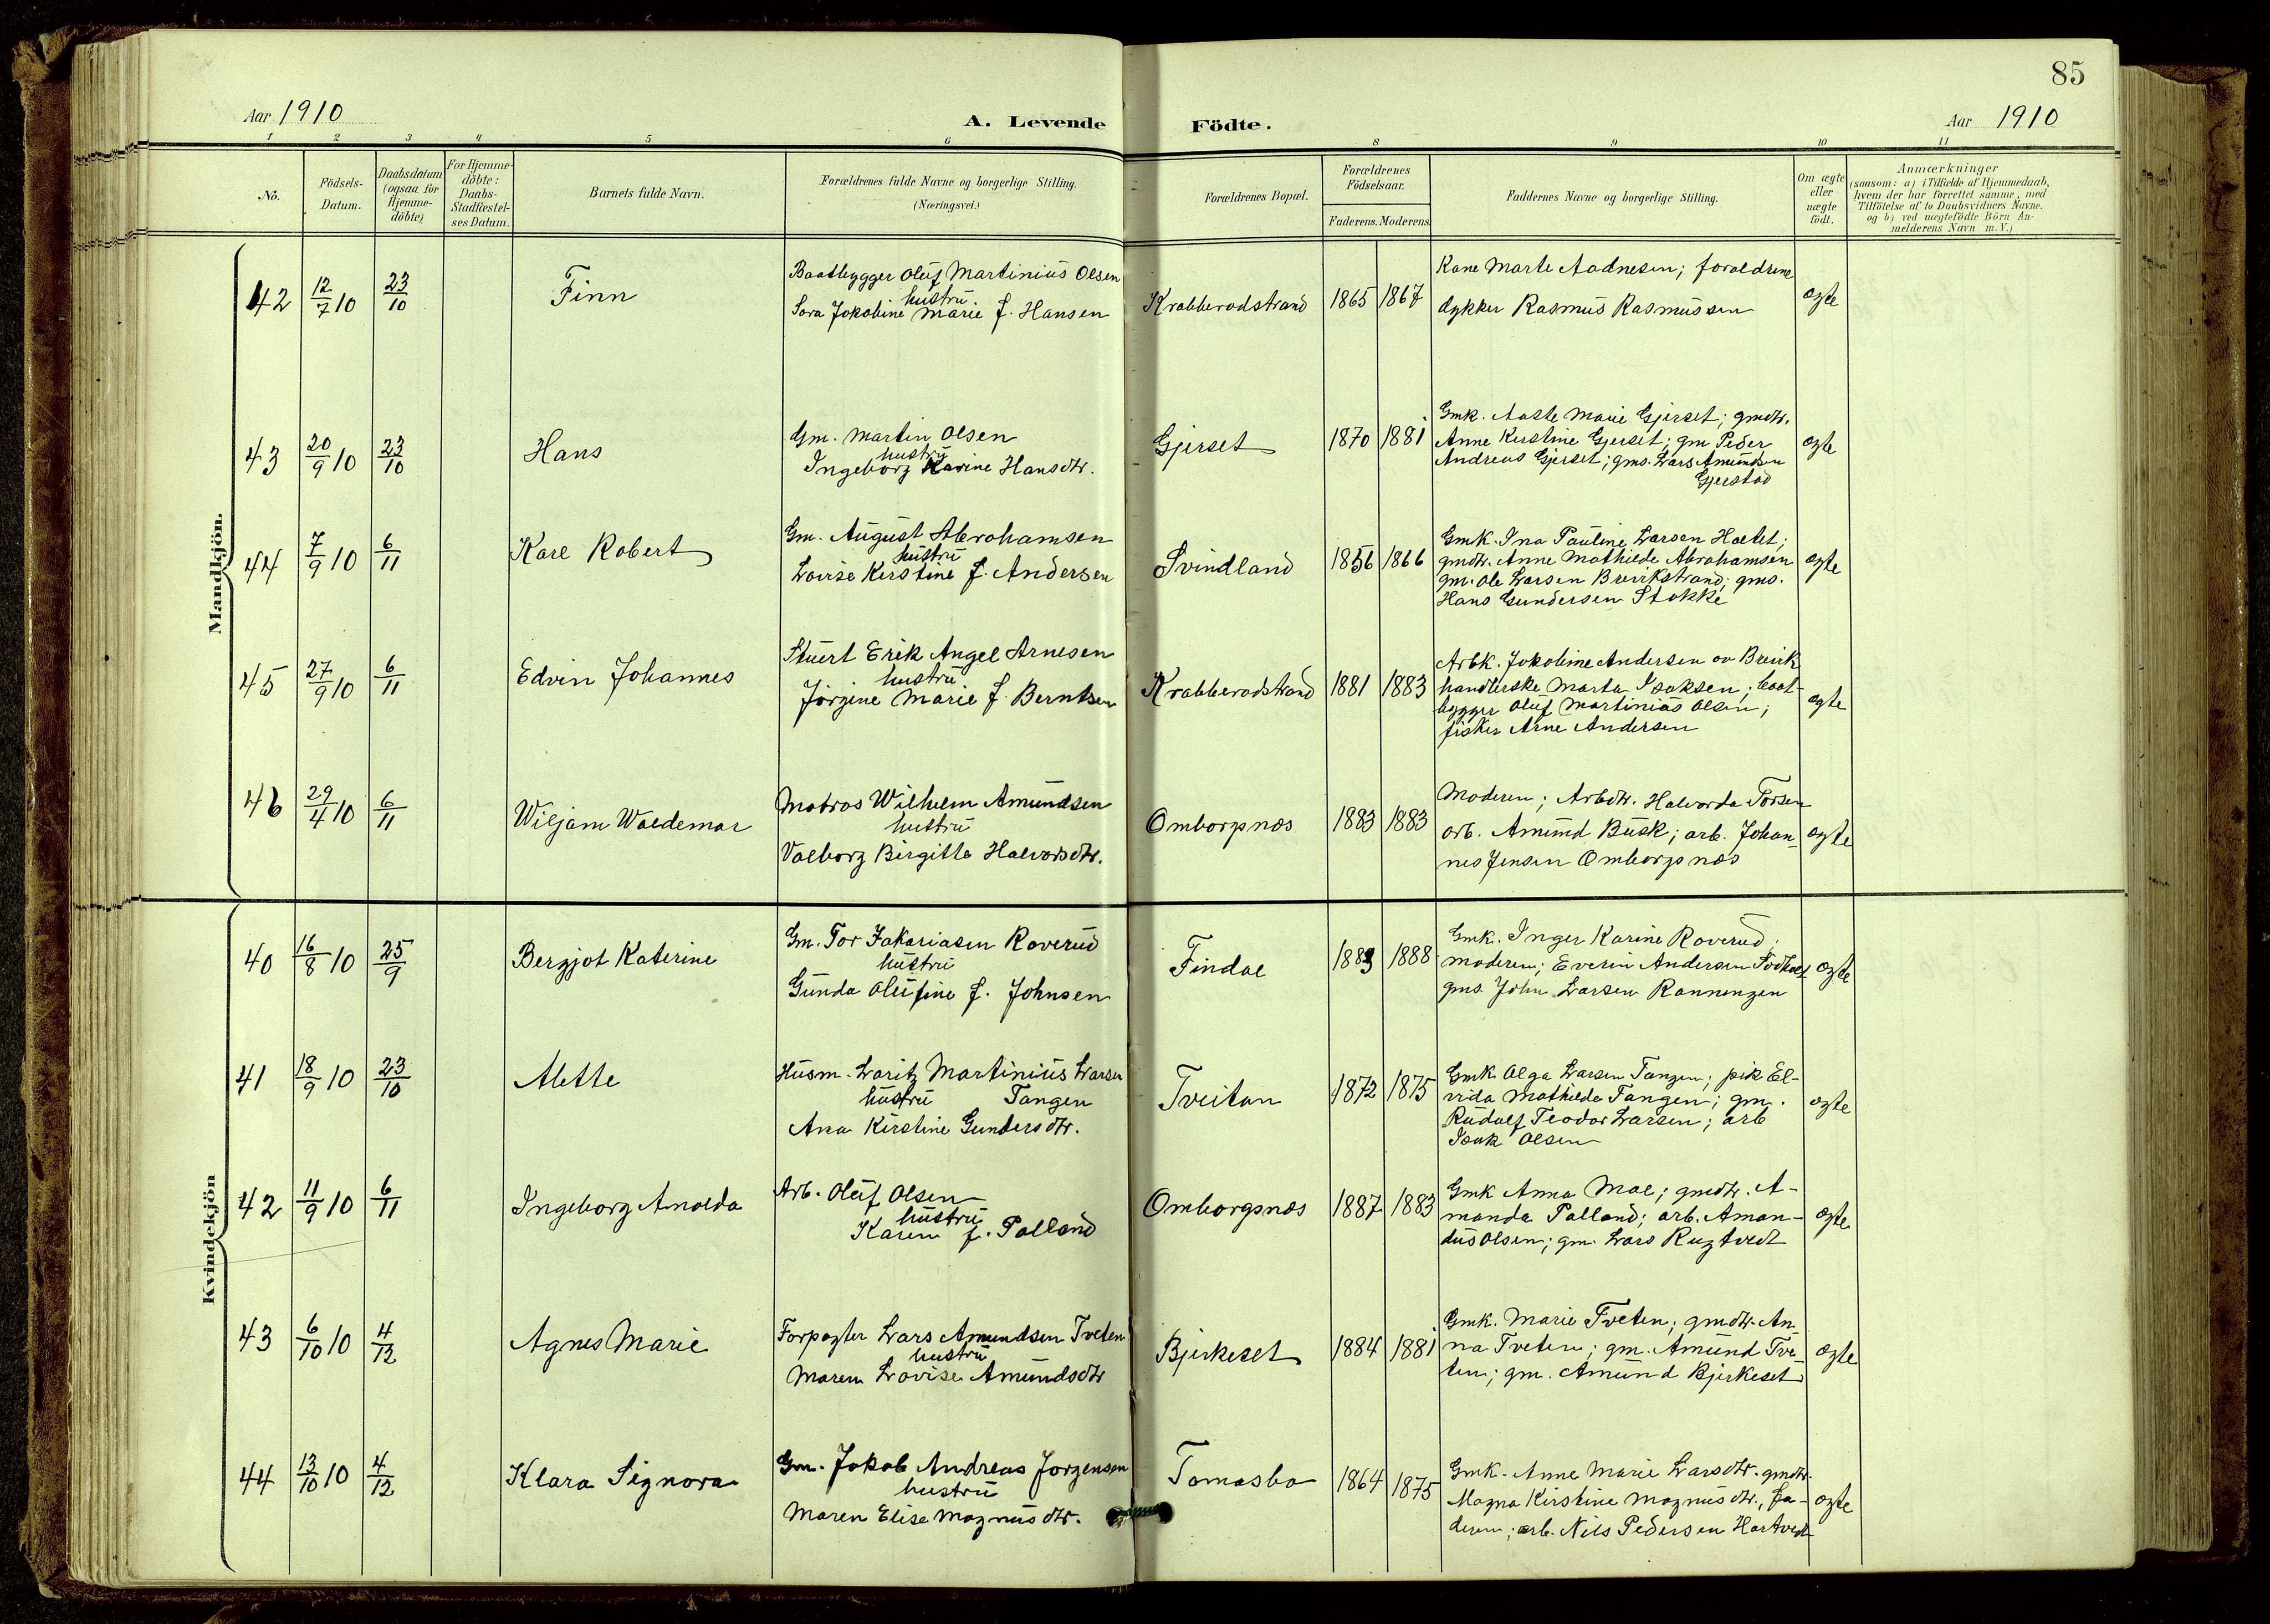 85
Aar 1910
A. Levende Födte.
Aar 1910
1 2 3 4 5 6 8 9 10 11
No.
Födsels-
Datum.
Daabsdatum
(ogsaa for
Hjemme-
döbte)
For Hjemme-
döbte:
Daabs-
Stadfæstel-
ses Datum.
Barnets fulde Navn.
Forældrenes fulde Navne og borgerlige Stilling.
(Næringsvei.)
Forældrenes Bopæl.
Forældrenes
Födselsaar.
Faderens. Moderens
Faddernes Navne og borgerlige Stilling.
Om ægte
eller
uægte
födt.
Anmærkninger
(saasom: a) i Tilfælde af Hjemmedaab,
hvem der har forrettet samme, med
Tilföielse af to Daabsvidners Navne.
og b) ved uægtefödte Börn An-
melderens Navn m.V.)
Mandkjön.
42 12/7 10 23/10 Finn
Baatbygger Oluf Martinius Olsen
hustru
Sara Jokobine Marie f. Hansen
Krabberødstrand 1865 1867
Kane Marte Aadnesen; foraldrene
dykker Rasmus Rasmussen
ægte
43 20/9 10 23/10 Hans
Gm. Martin Olsen
hustru
Ingeborg Karine Hansdtr.
Gjerset 1870 1881
Gmk. Aaste Marie Gjerset; gmdtr.
Anne Kirstine Gjerset; gm Peder
Andreas Gjerset; gms. Lars Amundsen
Gjerstad
ægte
44 7/9 10 6/11 Karl Robert
Gm. August Abrahamsen
hustru
Lovise Kirstine f. Andersen
Svindland 1856 1866
Gmk. Ina Pauline Larsen Holtet;
gmdtr. Anne Mathilde Abrahamsen
gm. Ole Larsen Brevikstrand; gms.
Hans Gundersen Stokke
ægte
45 27/9 10 6/11 Edvin Johannes
Stuert Erik Angel Arnesen
hustru
Jörgine Marie f. Berntsen
Krabberødstrand 1881 1883
Arbk. Jokobine Andersen av Brevik
handlerske Marta Isaksen; baat-
bygger Oluf Martinias Olsen;
fisker Arne Andersen
ægte
46 29/4 10 6/11 Wiljam Waldemar
Matros Wilhelm Amundsen
hustru
Valborg Birgitte Halvorsdtr.
Omborgsnæs 1883 1883
Moderen; Arbdtr. Halvorda Torsen
arb. Amund Busk; arb. Johan-
nes Jensen Omborgsnæs
ægte
Kvindekjön
40 16/8 10 25/9 Bergjot Katerine
Gm. Tor Zakariasen Røverud
hustru
Gunda Olufine f. Johnsen
Findal 1883 1888
Gmk. Inger Karine Røverud;
moderen; Everin Andersen
gms. John Larsen Rønningen
ægte
41 18/9 10 23/10 Alette
Husm. Laritz Martinius Larsen
hustru Tangen
Ana Kirstine Gundersdtr.
Tveitan 1872 1875
Gmk. Olga Larsen Tangen; pik El-
vida Mathilde Tangen; gm.
Rudolf Teodor Larsen; arb
Isak Olsen
ægte
42 11/9 10 6/11 Ingeborg Anolda
Arb. Oluf Olsen
hustru
Karen f. Palland
Omborgsnæs 1887 1883
Gmk Anna Moe; gmdtr. A-
manda Palland; arb. Aman-
dus Olsen; gm. Lars Rugtvedt
ægte
43 6/10 10 4/12 Agnes Marie
Forpagter Lars Amundsen Tveten
hustru
Maren Lovise Amundsdtr
Bjerkeset 1884 1881
Gmk. Marie Tveten; gmdtr. An-
na Tveten; gm. Amund Tve-
ten; gm. Amund Bjerkeset
ægte
44 13/10 10 4/12 Klara Signora
Gm. Jokob Andreas Jorgensen
hustru
Maren Elise Magnusdtr.
Tomasbo 1864 1875
Gmk. Anne Marie Larsdtr. gmdtr.
Magna Kirstine Magnusdtr., fa-
deren; arb. Nils Pedersen Hartvedt
ægte